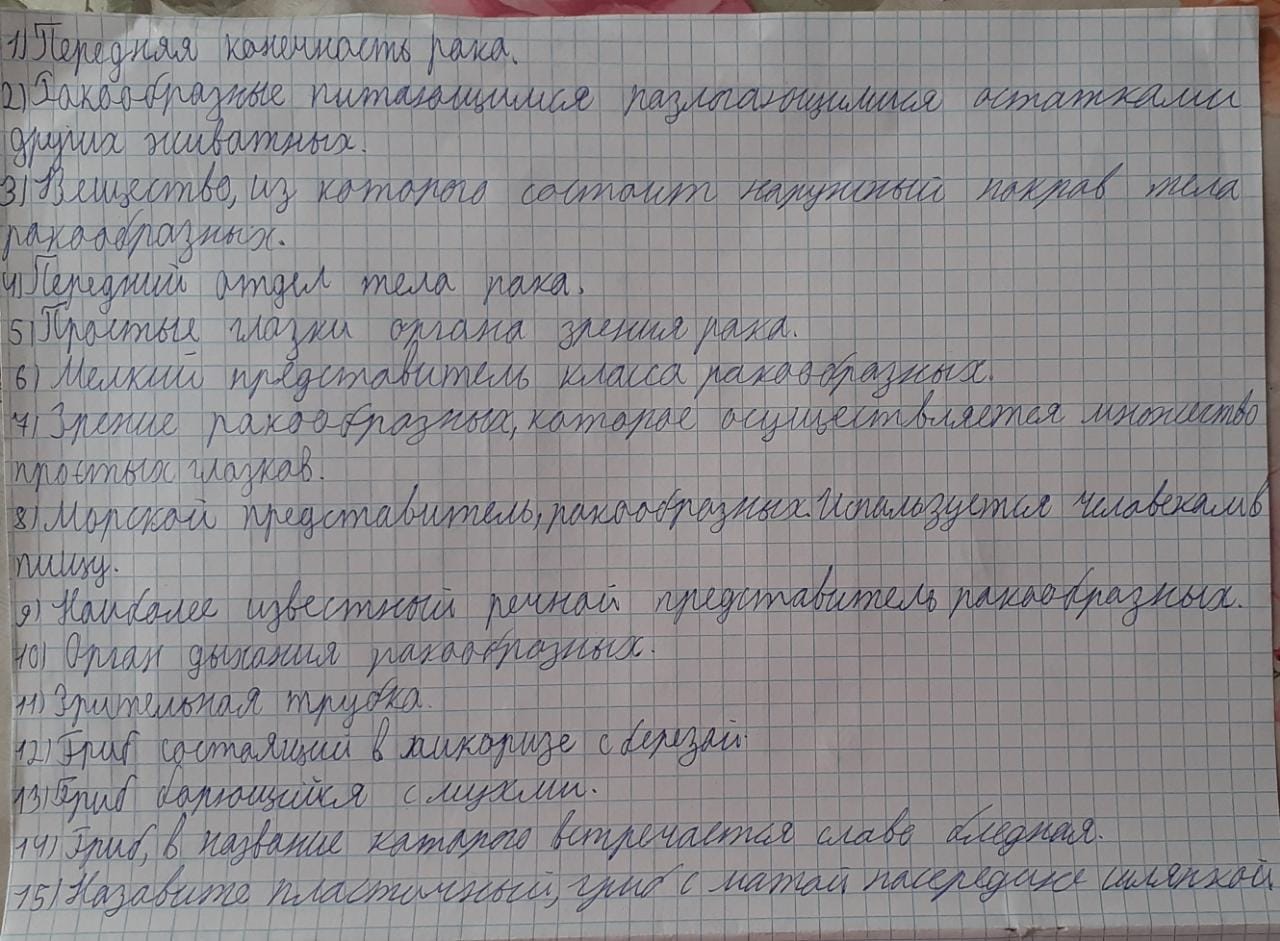 1) Передняя конечность рака.
2) Ракообразные питающимися разлогающимися остатками
других животных.
3) Вещество, из которого состоит наружный покров тела
ракообразных.
4) Передний отдел тела рака.
5) Простые глазки органа зрения рака.
6) Мелкий представитель класса ракообразных.
7) Зрение ракообразных, которое осуществляется множество
простых глазков.
8) Морской представитель, ракообразных. Используется человеком в
пищу.
9) Наиболее известный речной представитель ракообразных.
10) Орган дыхания ракообразных.
11) Зрительная трубка.
12) Гриб состоящий в микоризе с березой.
13) Гриб борющийся с мухми.
14) Гриб, в название которого встречается слово бледная.
15) Назовите пластичный, гриб с матой посередине шляпкой